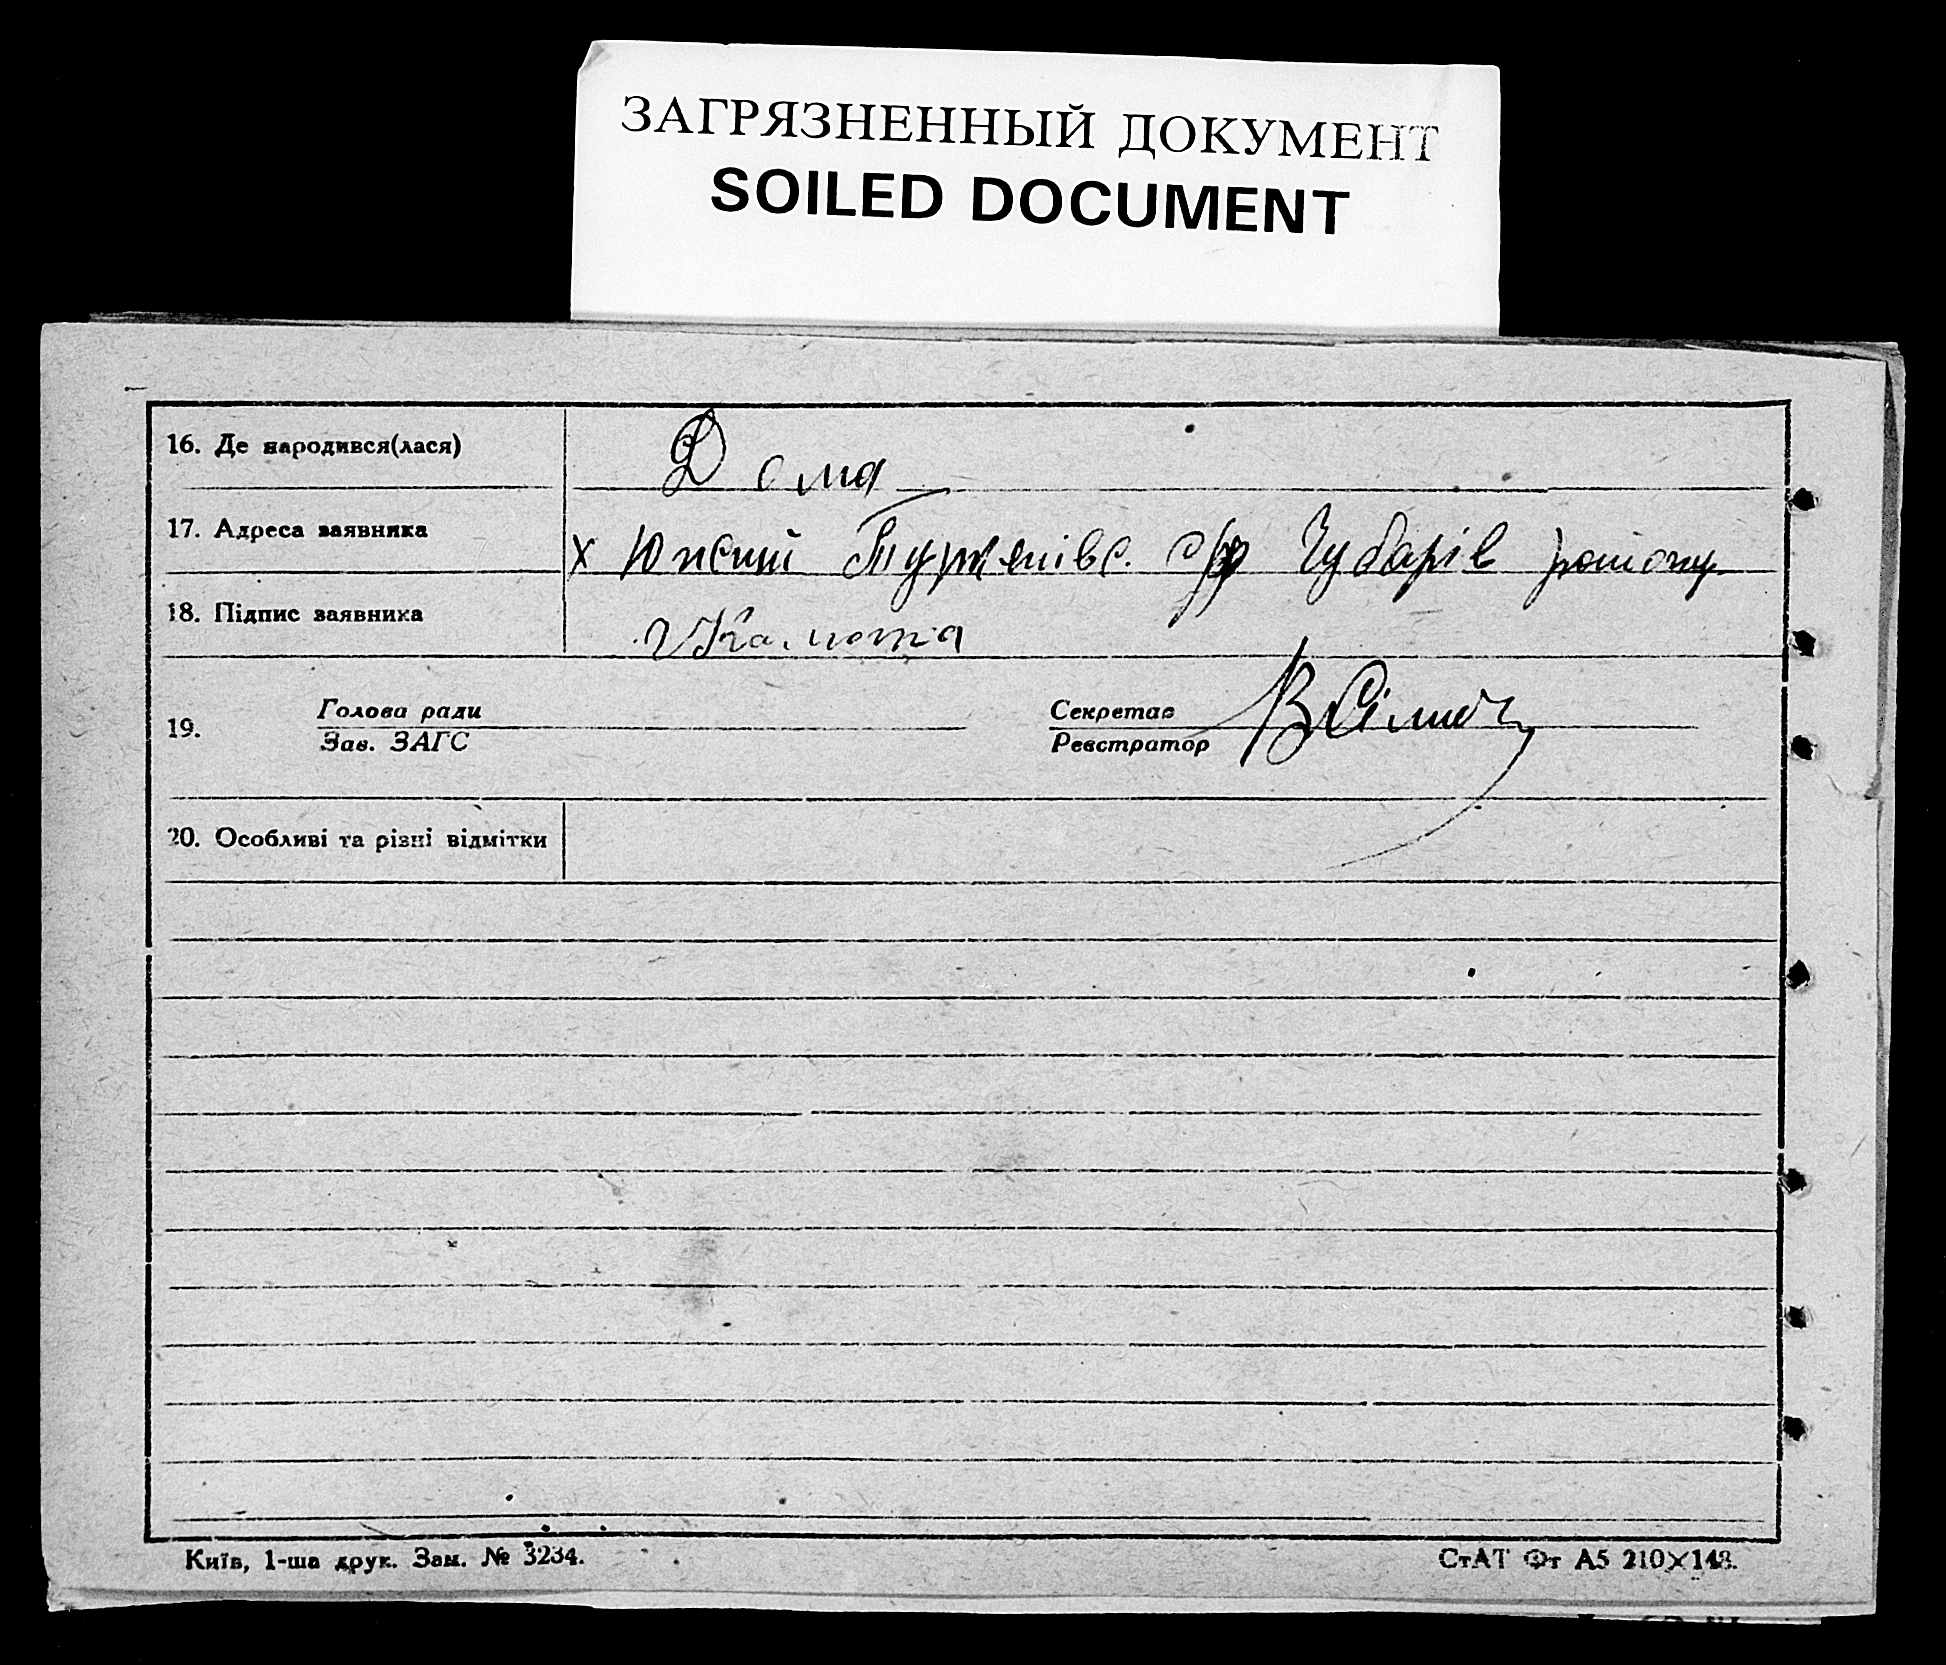 ЗАГРЯЗНЕННЫЙ ДОКУМЕНТ
SOILED DOCUMENT
16. Де народився(лася) Дома
17. Адреса заявника х Южний с/р Чубарів району
18. Підпис заявника
19. Голова ради Секретар
Зав. ЗАГС Реєстратор
20. Особливі та різні відмітки
Київ, 1-ша друк. Зам. № 3234. СтАТ Фт А5 210×148.